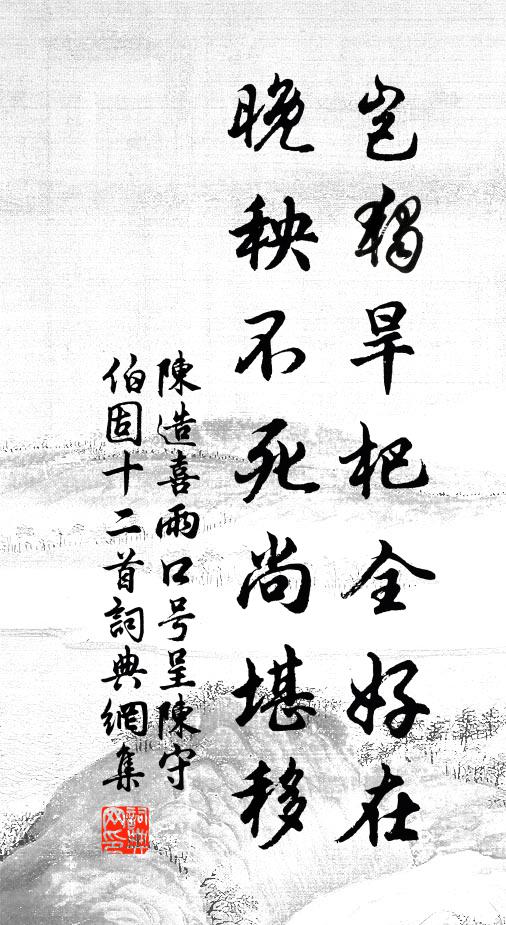 岂獨旱杷全好在
晚秧不死尚堪移
陳造喜雨口号呈陳守
伯固十二首詞典網集